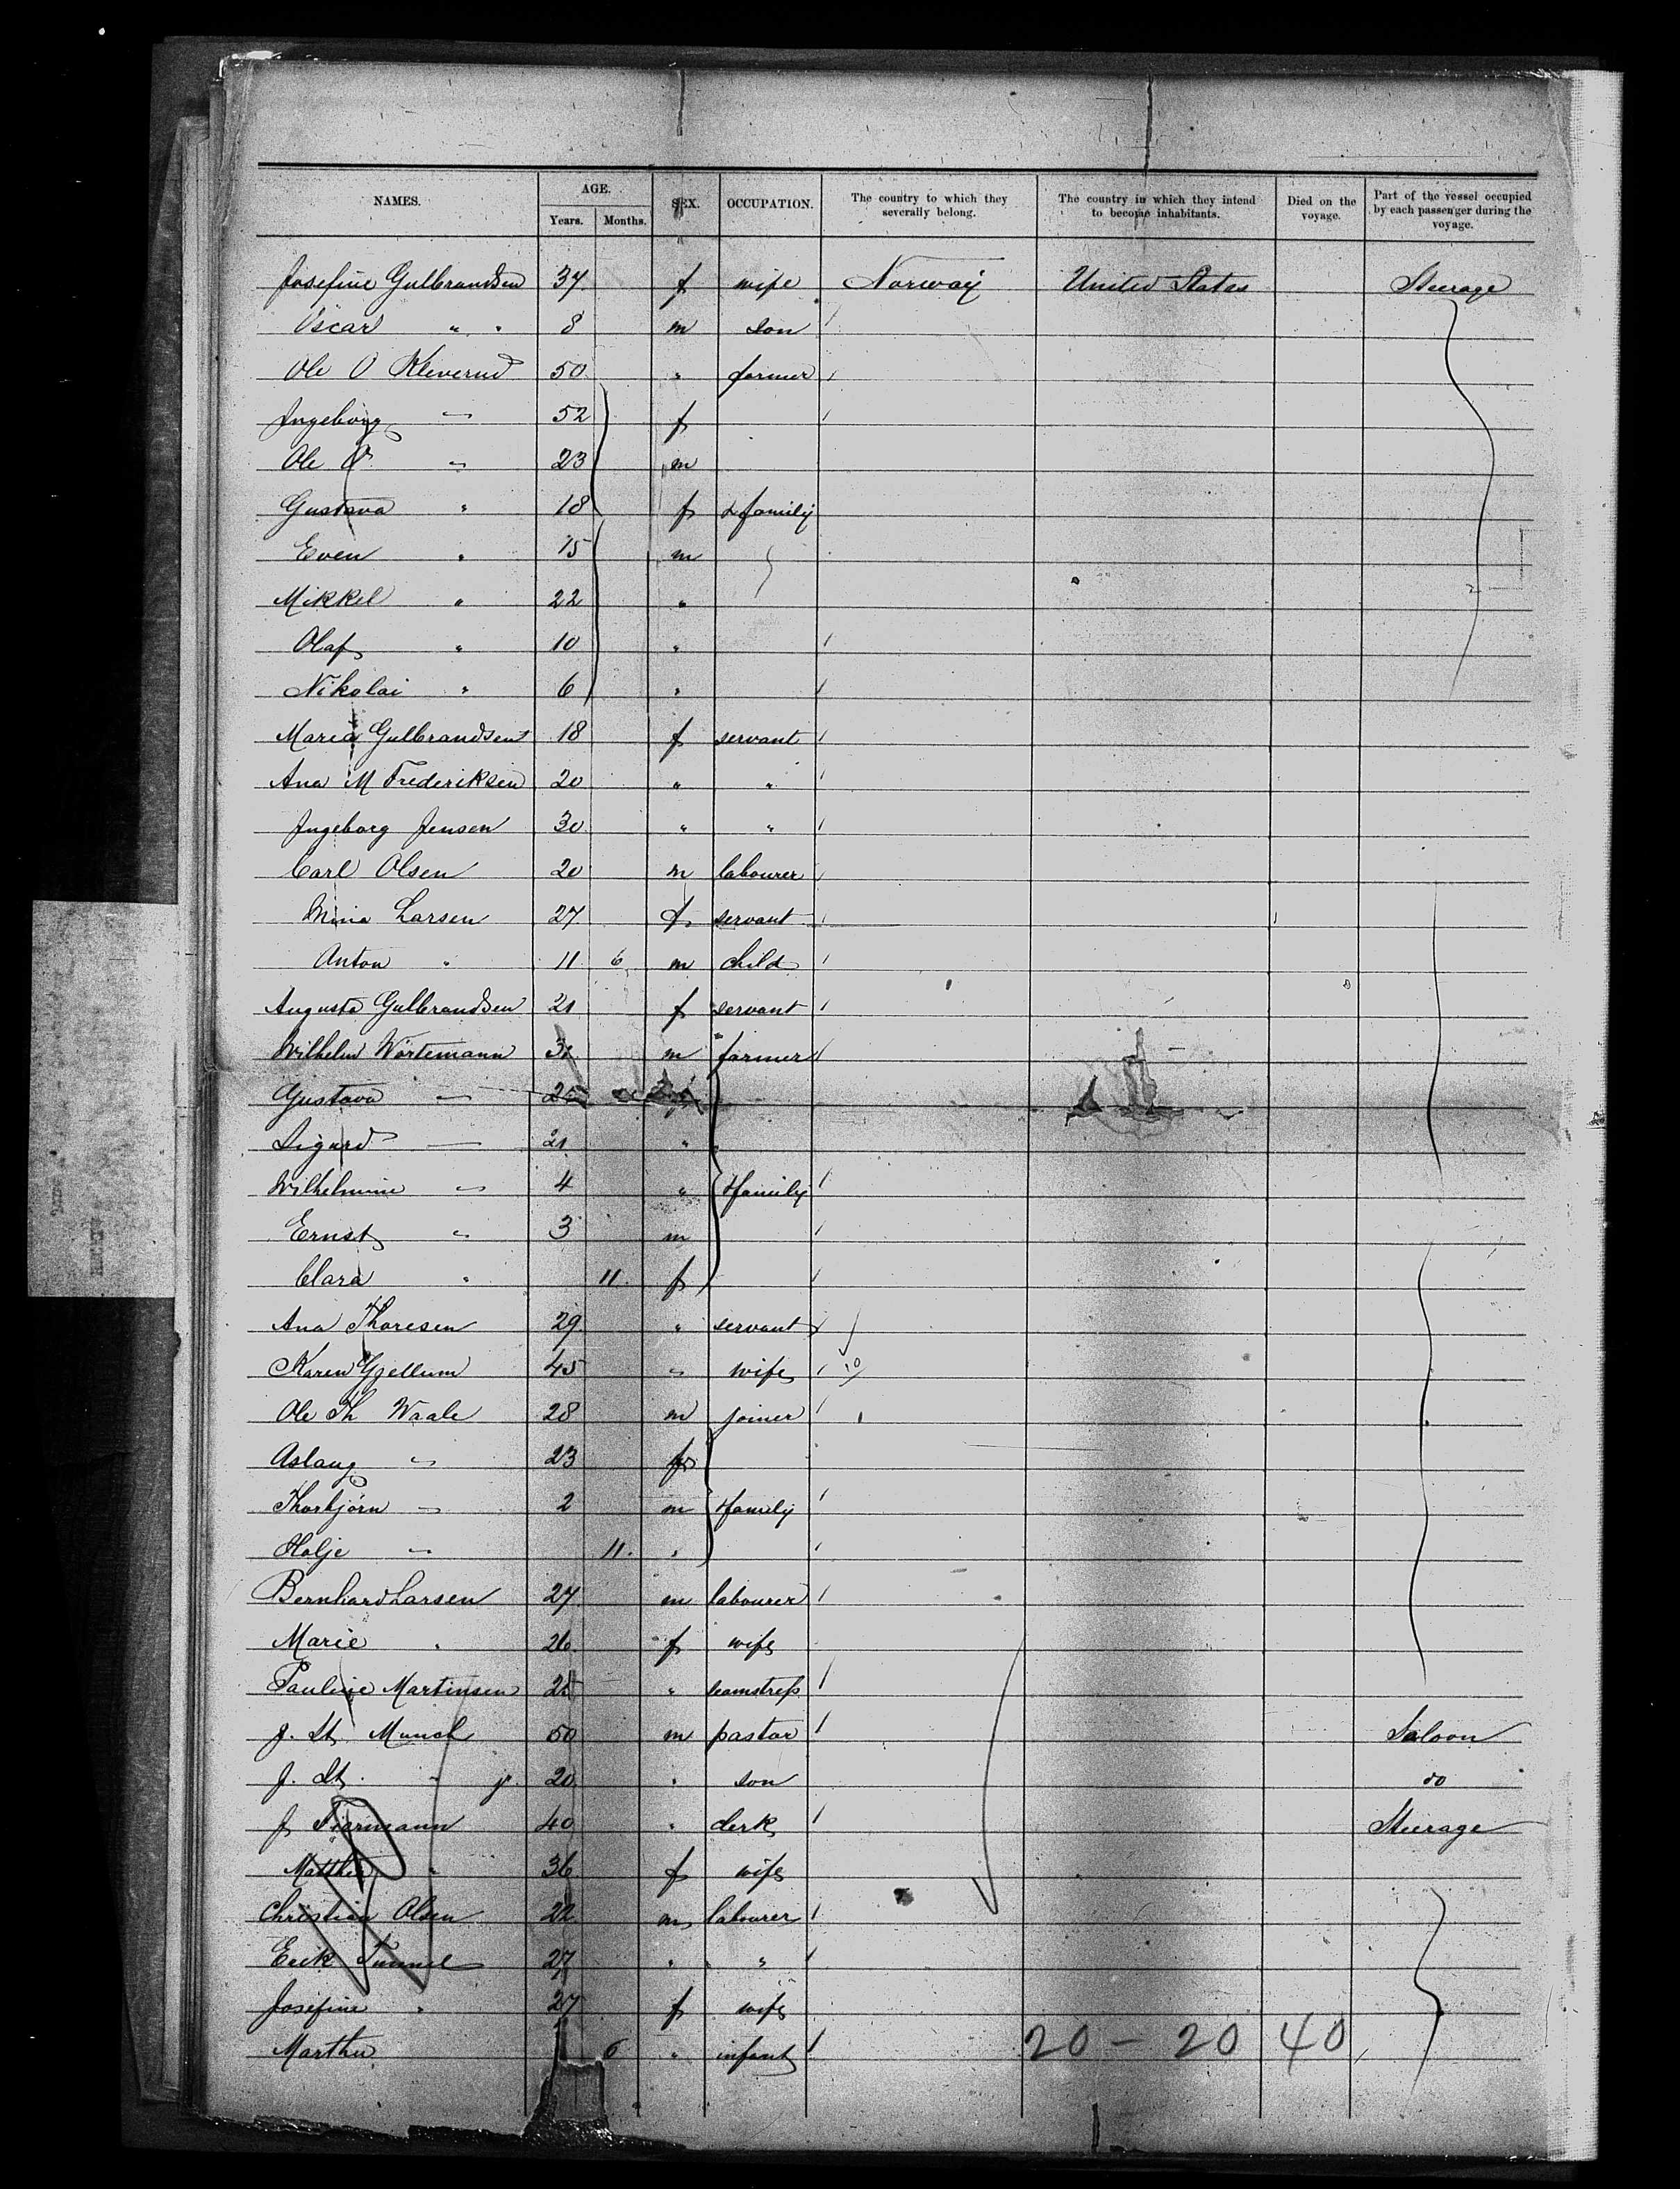 NAMES. AGE. SEX. OCCUPATION. The country to which they severally belong. The country in which they intend to become inhabitants. Died on the voyage. Part of the vessel occupied by each passenger during the voyage.
Years. Months.
Josefine Gulbrandsen 37 f wife Norway United States Steerage
Oscar " " 8 m son
Ole O Kleverud 50 " farmer
Ingeborg " 52 f
Ole O " 23 m
Gustava " 18 f & family
Even " 15 m
Mikkel " 22 "
Olaf " 10 "
Nikolai " 6 "
Maria Gulbrandsen 18 f servant
Ana M Frederiksen 20 " "
Ingeborg Jensen 30 " "
Carl Olsen 20 m labourer
Mina Larsen 27 f servant
Anton " 11 6 m child
Augusta Gulbrandsen 21 f servant
Wilhelm Wörtemann m farmer
Gustava "
Sigurd " 21 "
Wilhelmine " 4 " & family
Ernst " 3 m
Clara " 11 f
Ana Thoresen 29 " servant
Karen Gjellum 45 " wife
Ole Th Waale 28 m joiner
Aslaug " 23 f
Thorbjörn " 2 m & family
Holje " 11 "
Bernhard Larsen 27 m labourer
Marie " 26 f wife
Pauline Martinsen 25 " seamstress
J. St. Munch 50 m pastor Saloon
J. St. " jr. 20 " son do
J Tjormann 40 " clerk Steerage
Mathea " 36 f wife
Christian Olsen 22 m labourer
Erik 27 " "
Josefine " 27 f wife
Martha 6 " infant
20 - 20 40